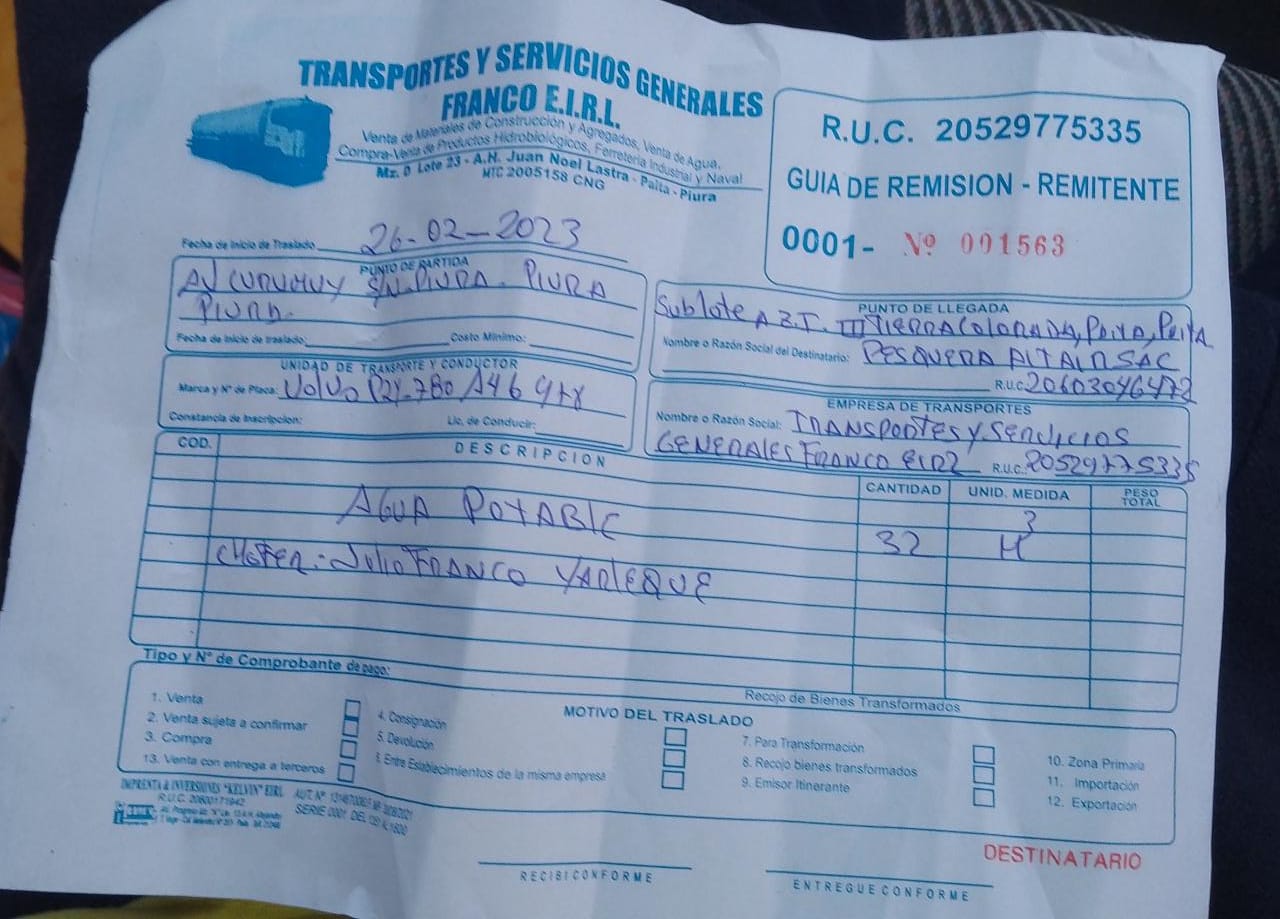 TRANSPORTES Y SERVICIOS GENERALES
FRANCO E.I.R.L.
Venta de Materiales de Construcción y Agregados, Venta de Agua,
Compra-Venta de Productos Hidrobiológicos, Ferretería Industrial y Naval
Mz. D Lote 23 - A.H. Juan Noel Lastra - Paita - Piura
MTC 2005158 CNG
R.U.C. 20529775335
GUIA DE REMISION - REMITENTE
0001- Nº 001563
Fecha de Inicio de Traslado 26-02-2023
PUNTO DE PARTIDA
AV CURUMUY S/N-PIURA. PIURA
PIURA.
Fecha de Inicio de traslado: Costo Mínimo:
PUNTO DE LLEGADA
Sublote A Z.I. III TIERRA COLORADA, PAITA, PAITA
Nombre o Razón Social del Destinatario: PESQUERA ALTAIR SAC
R.U.C. 20603046472
UNIDAD DE TRANSPORTE Y CONDUCTOR
Marca y Nº de Placa: VOLVO P2Y-780 A46 978
Constancia de Inscripcion: Lic. de Conducir:
EMPRESA DE TRANSPORTES
Nombre o Razón Social: TRANSPORTES Y SERVICIOS
GENERALES FRANCO EIRL R.U.C.: 20529775335
COD. DESCRIPCION CANTIDAD UNID. MEDIDA PESO TOTAL
AGUA POTABLE 32 M3
CHOFER: Julio FRANCO YARLEQUE
Tipo y Nº de Comprobante de pago:
Recojo de Bienes Transformados
MOTIVO DEL TRASLADO
1. Venta
2. Venta sujeta a confirmar
3. Compra
13. Venta con entrega a terceros
4. Consignación
5. Devolución
Entre Establecimientos de la misma empresa
7. Para Transformación
8. Recojo bienes transformados
9. Emisor Itinerante
10. Zona Primaria
11. Importación
12. Exportación
IMPRENTA & INVERSIONES "KELVIN" EIRL
R.U.C. 20600171942
SERIE 0001 DEL
DESTINATARIO
RECIBI CONFORME
ENTREGUE CONFORME